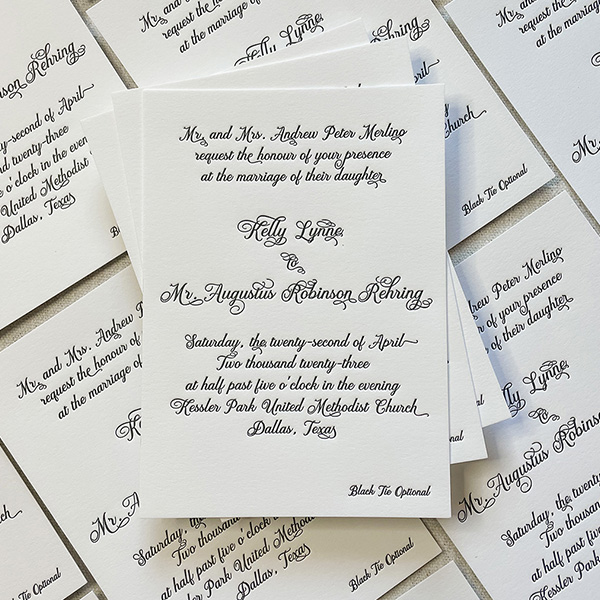 Mr. and Mrs. Andrew Peter Merlino
request the honour of your presence
at the marriage of their daughter
Kelly Lynne
to
Mr. Augustus Robinson Rehring
Saturday, the twenty-second of April
Two thousand twenty-three
at half past five o'clock in the evening
Kessler Park United Methodist Church
Dallas, Texas
Black Tie Optional